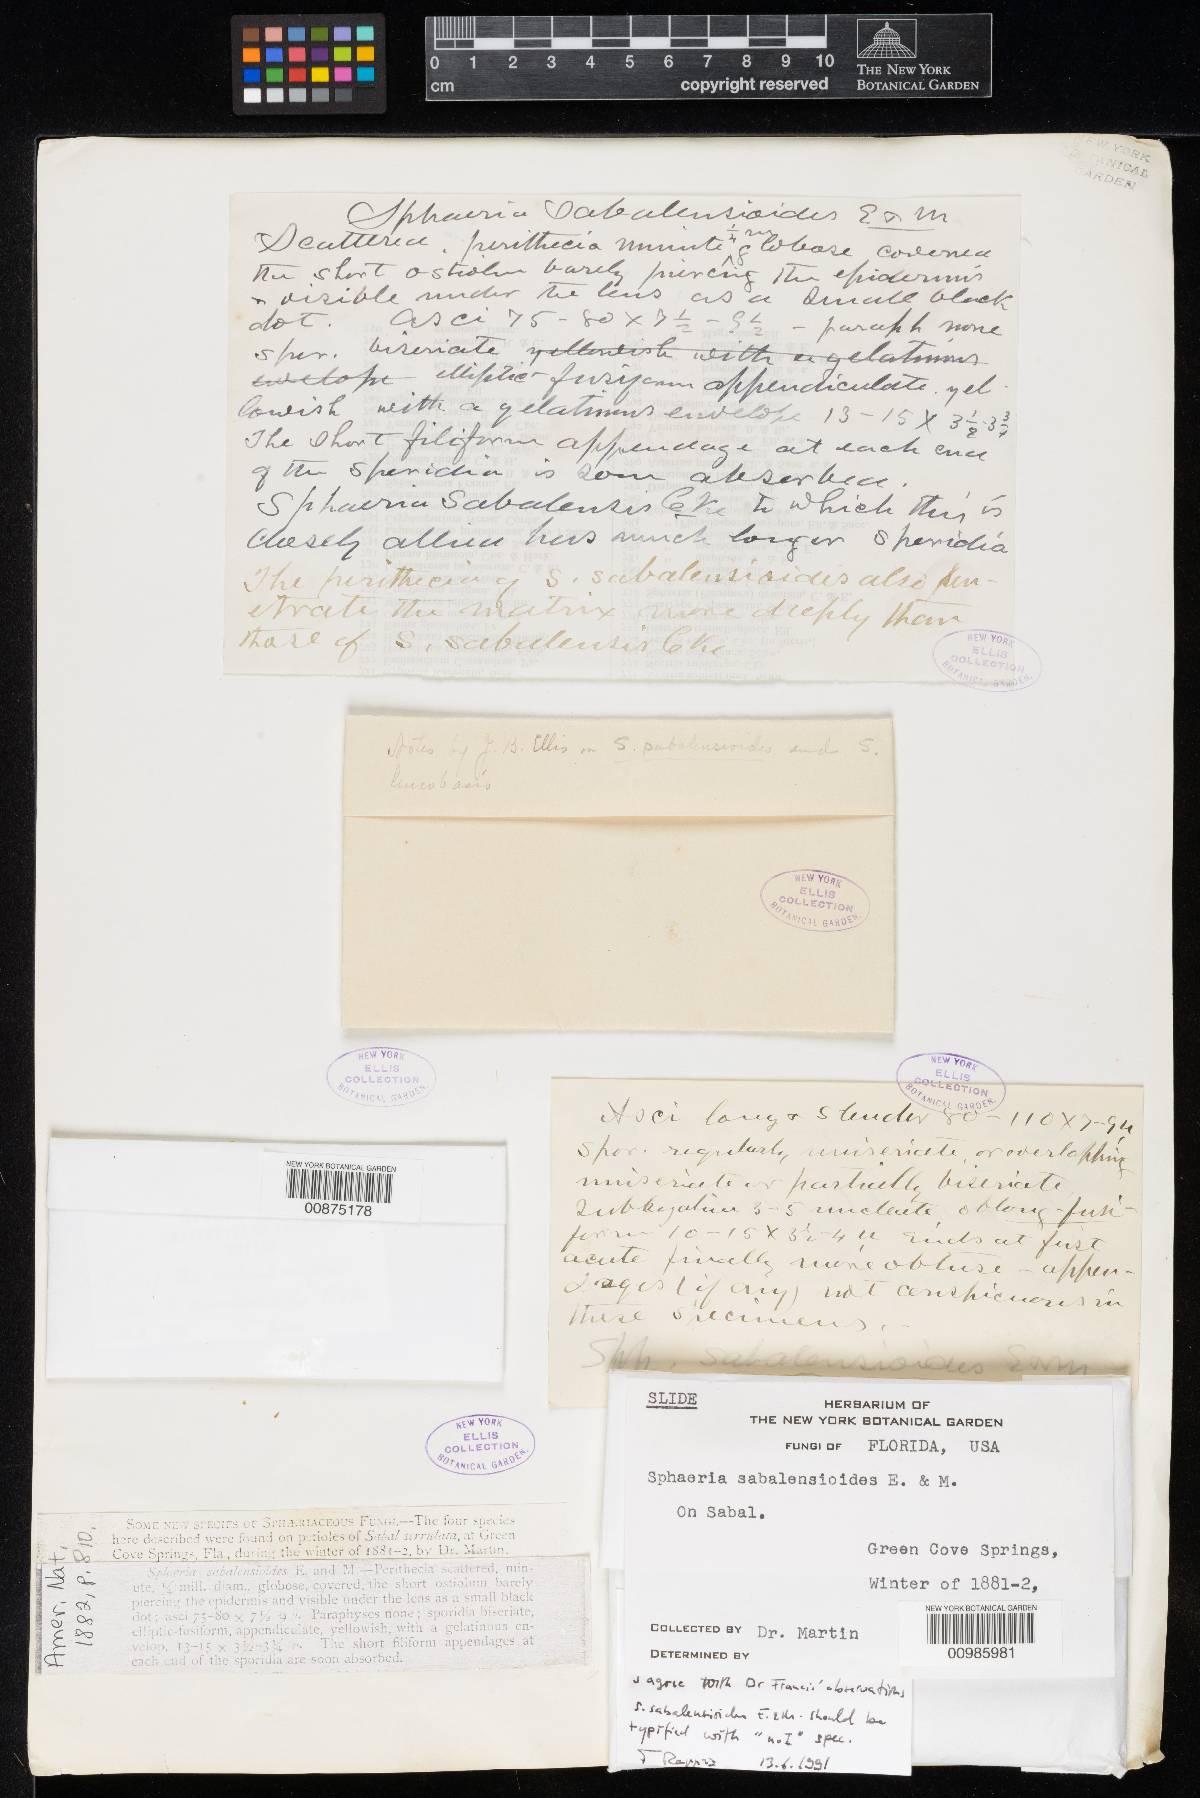 0 1 2 3 4 5 6 7 8 9 10
cm
copyright reserved
THE NEW YORK
BOTANICAL GARDEN
NEW YORK
BOTANICAL
GARDEN
Sphaeria Sabalensioides E & M
Scattered, perithecia minute ¼ mm globose covered
the short ostiolum barely piercing the epidermis
& visible under the lens as a small black
dot. Asci 75-80 x 7½-9½ - paraph none
spor. biseriate yellowish with a gelatinous
envelope elliptic-fusiform appendiculate yel-
lowish with a gelatinous envelope 13-15 x 3½-3¾
The short filiform appendage at each end
of the sporidia is soon absorbed.
Sphaeria Sabalensis Cke to which this is
closely allied has much longer sporidia
The perithecia of S. sabalensioides also pen-
etrate the matrix more deeply than
those of S. sabalensis Cke
NEW YORK
ELLIS
COLLECTION
BOTANICAL GARDEN.
Notes by J. B. Ellis on S. sabalensioides and S.
leucobasis
NEW YORK
ELLIS
COLLECTION
BOTANICAL GARDEN.
NEW YORK
ELLIS
COLLECTION
BOTANICAL GARDEN.
NEW YORK
ELLIS
COLLECTION
BOTANICAL GARDEN.
Asci long & slender 80-110 x 7-9µ
Spor. regularly uniseriate, or overlapping
uniseriate or partially biseriate,
subhyaline 3-5 nucleate, oblong-fusi-
form 10-15 x 3½-4µ ends at first
acute finally more obtuse - appen-
dages (if any) not conspicuous in
these specimens.-
Sph. sabalensioides E&M
NEW YORK BOTANICAL GARDEN
00875178
NEW YORK
ELLIS
COLLECTION
BOTANICAL GARDEN.
Amer. Nat,
1882, p. 810.
SOME NEW SPECIES OF SPHÆRIACEOUS FUNGI.—The four species
here described were found on petioles of Sabal serrulata, at Green
Cove Springs, Fla., during the winter of 1881-2, by Dr. Martin.
Sphæria sabalensioides E. and M.—Perithecia scattered, min-
ute, ¼ mill. diam., globose, covered, the short ostiolum barely
piercing the epidermis and visible under the lens as a small black
dot; asci 75-80 x 7½ 9 µ. Paraphyses none; sporidia biseriate,
elliptic-fusiform, appendiculate, yellowish, with a gelatinous en-
velop, 13-15 x 3½-3¾ µ. The short filiform appendages at
each end of the sporidia are soon absorbed.
SLIDE
HERBARIUM OF
THE NEW YORK BOTANICAL GARDEN
FUNGI OF FLORIDA, USA
Sphaeria sabalensioides E. & M.
On Sabal.
Green Cove Springs,
Winter of 1881-2,
COLLECTED BY Dr. Martin
DETERMINED BY
NEW YORK BOTANICAL GARDEN
00985981
I agree with Dr Francis' observations
S. sabalensioides E. & M. should be
typified with "n.I" spec.
13.6.1991